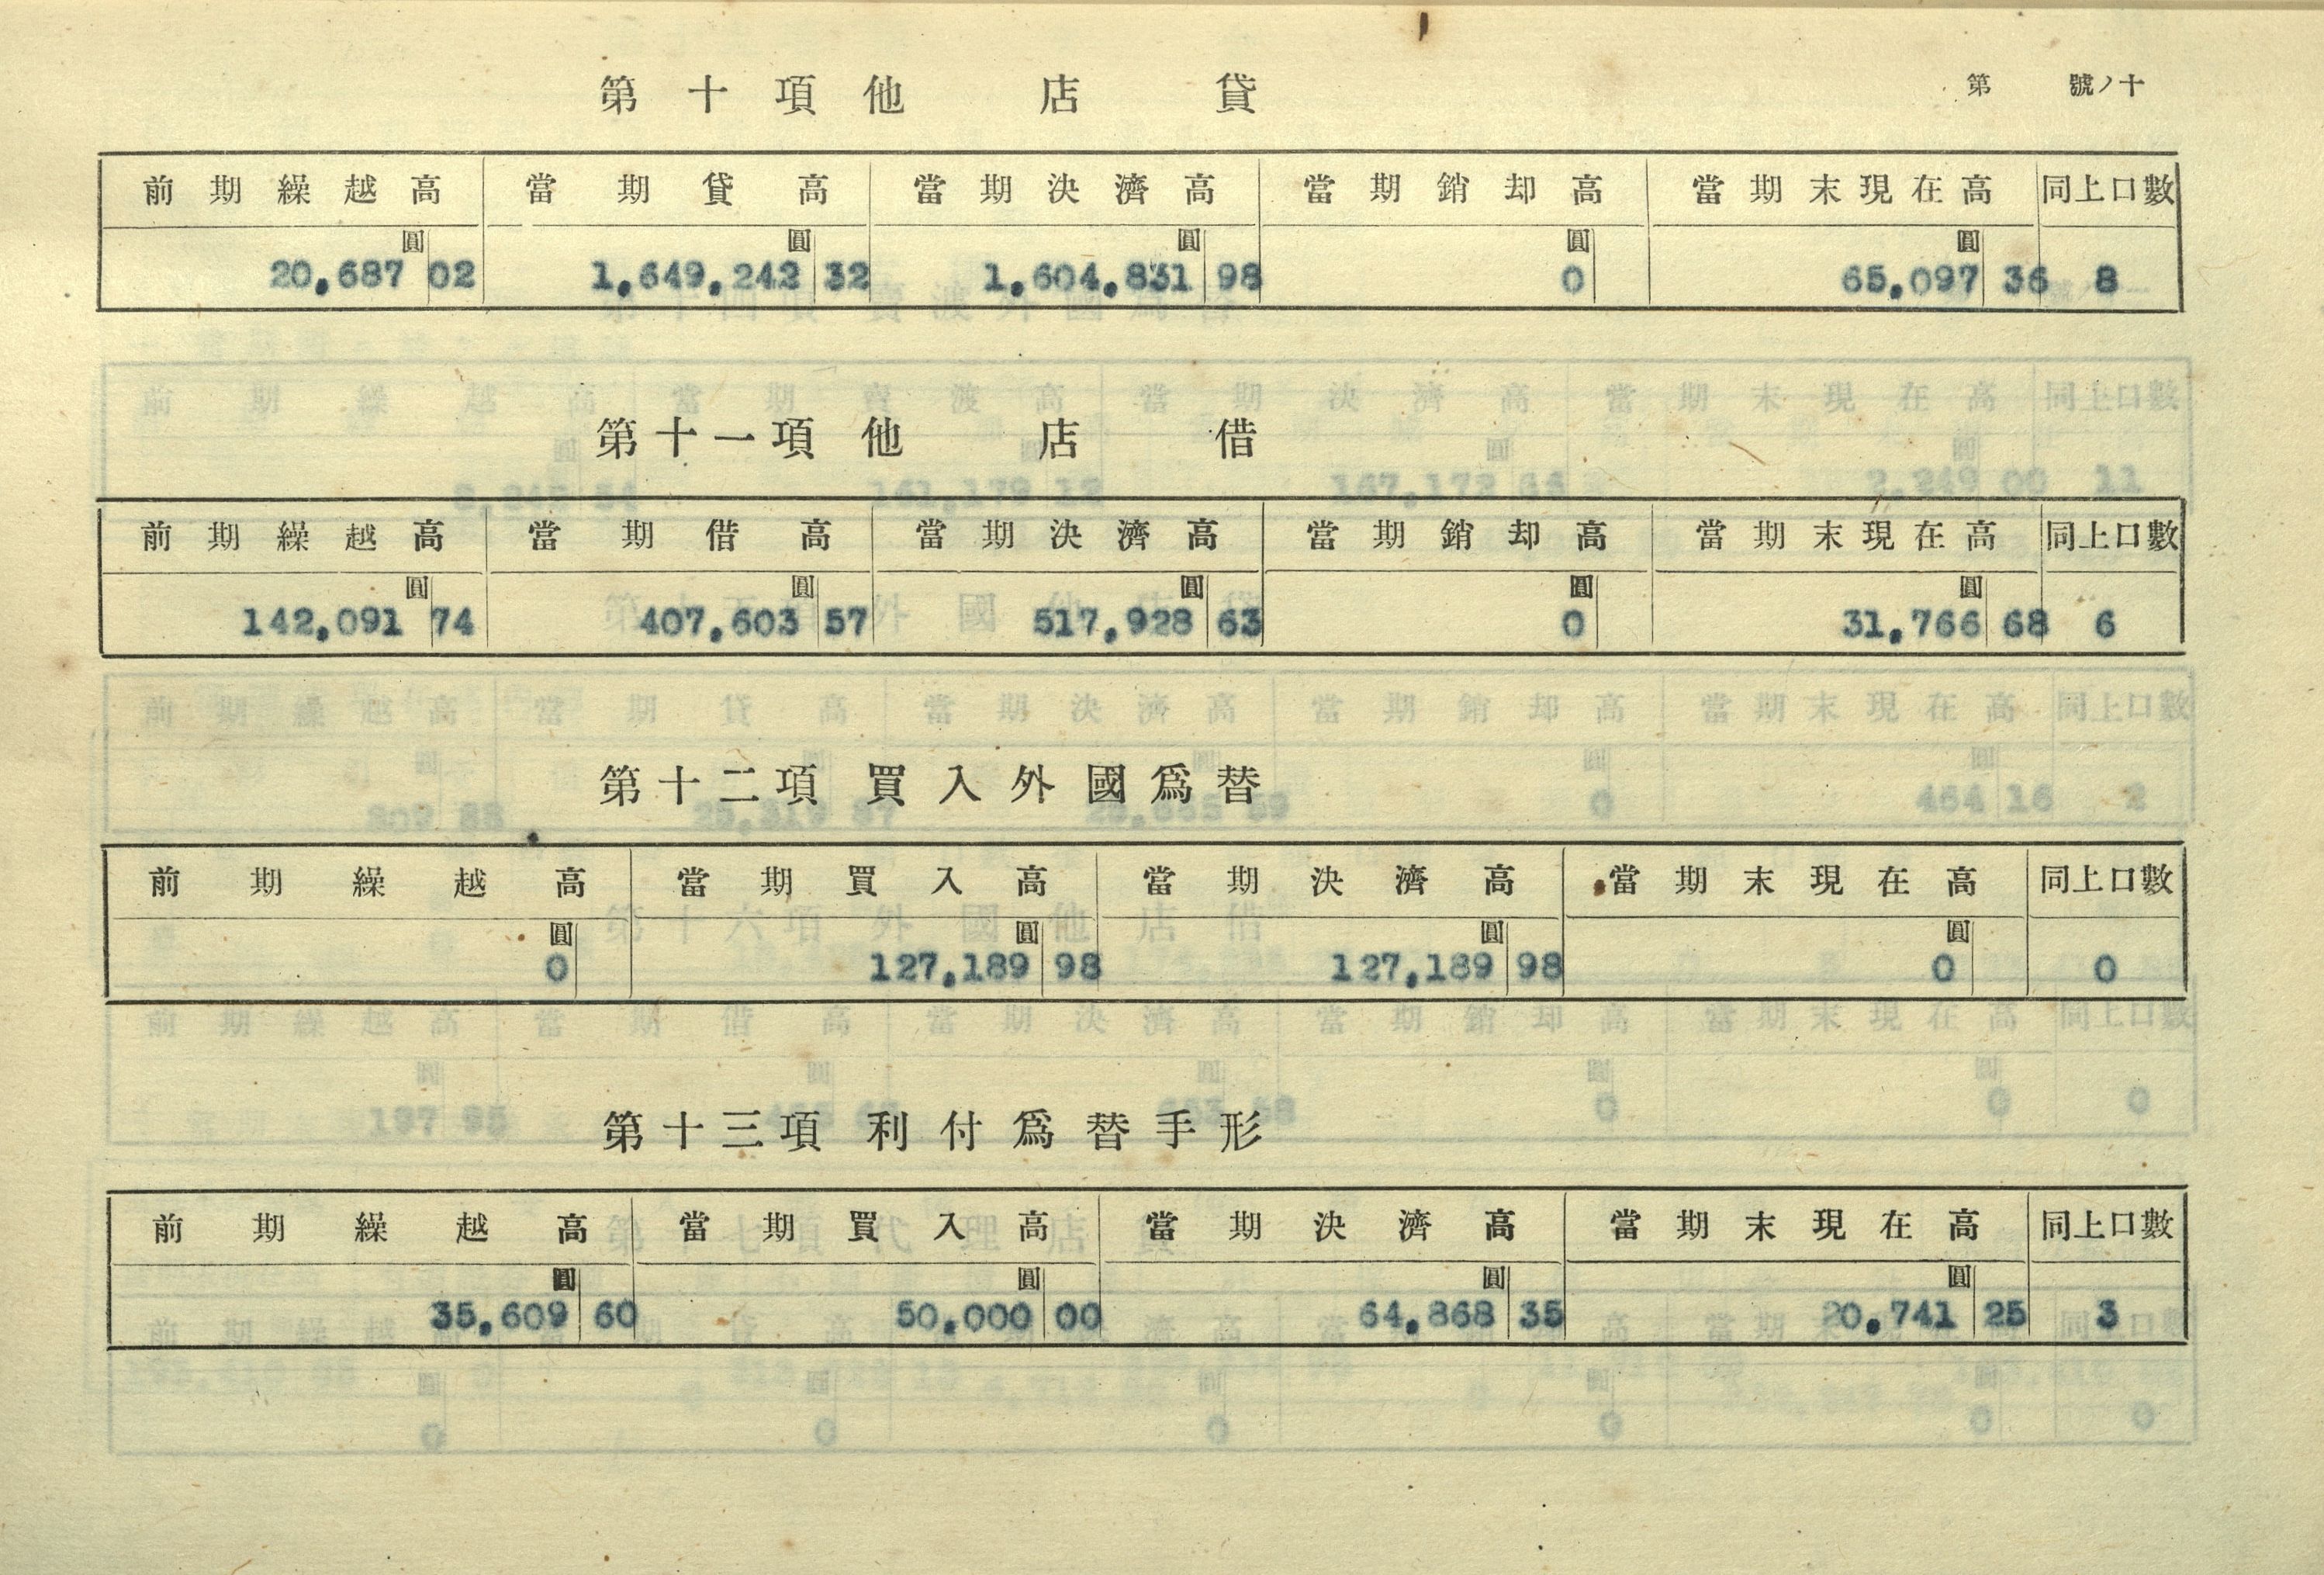 第十項 他店貸 第 號ノ十
前期繰越高 當期貸高 當期決濟高 當期銷却高 當期末現在高 同上口數
圓 圓 圓 圓 圓
20,687 02 1,649,242 32 1,604,831 98 0 65,097 36 8
第十一項 他店借
前期繰越高 當期借高 當期決濟高 當期銷却高 當期末現在高 同上口數
圓 圓 圓 圓 圓
142,091 74 407,603 57 517,928 63 0 31,766 68 6
第十二項 買入外國爲替
前期繰越高 當期買入高 當期決濟高 當期末現在高 同上口數
圓 圓 圓 圓
0 127,189 98 127,189 98 0 0
第十三項 利付爲替手形
前期繰越高 當期買入高 當期決濟高 當期末現在高 同上口數
圓 圓 圓 圓
35,609 60 50,000 00 64,868 35 20,741 25 3